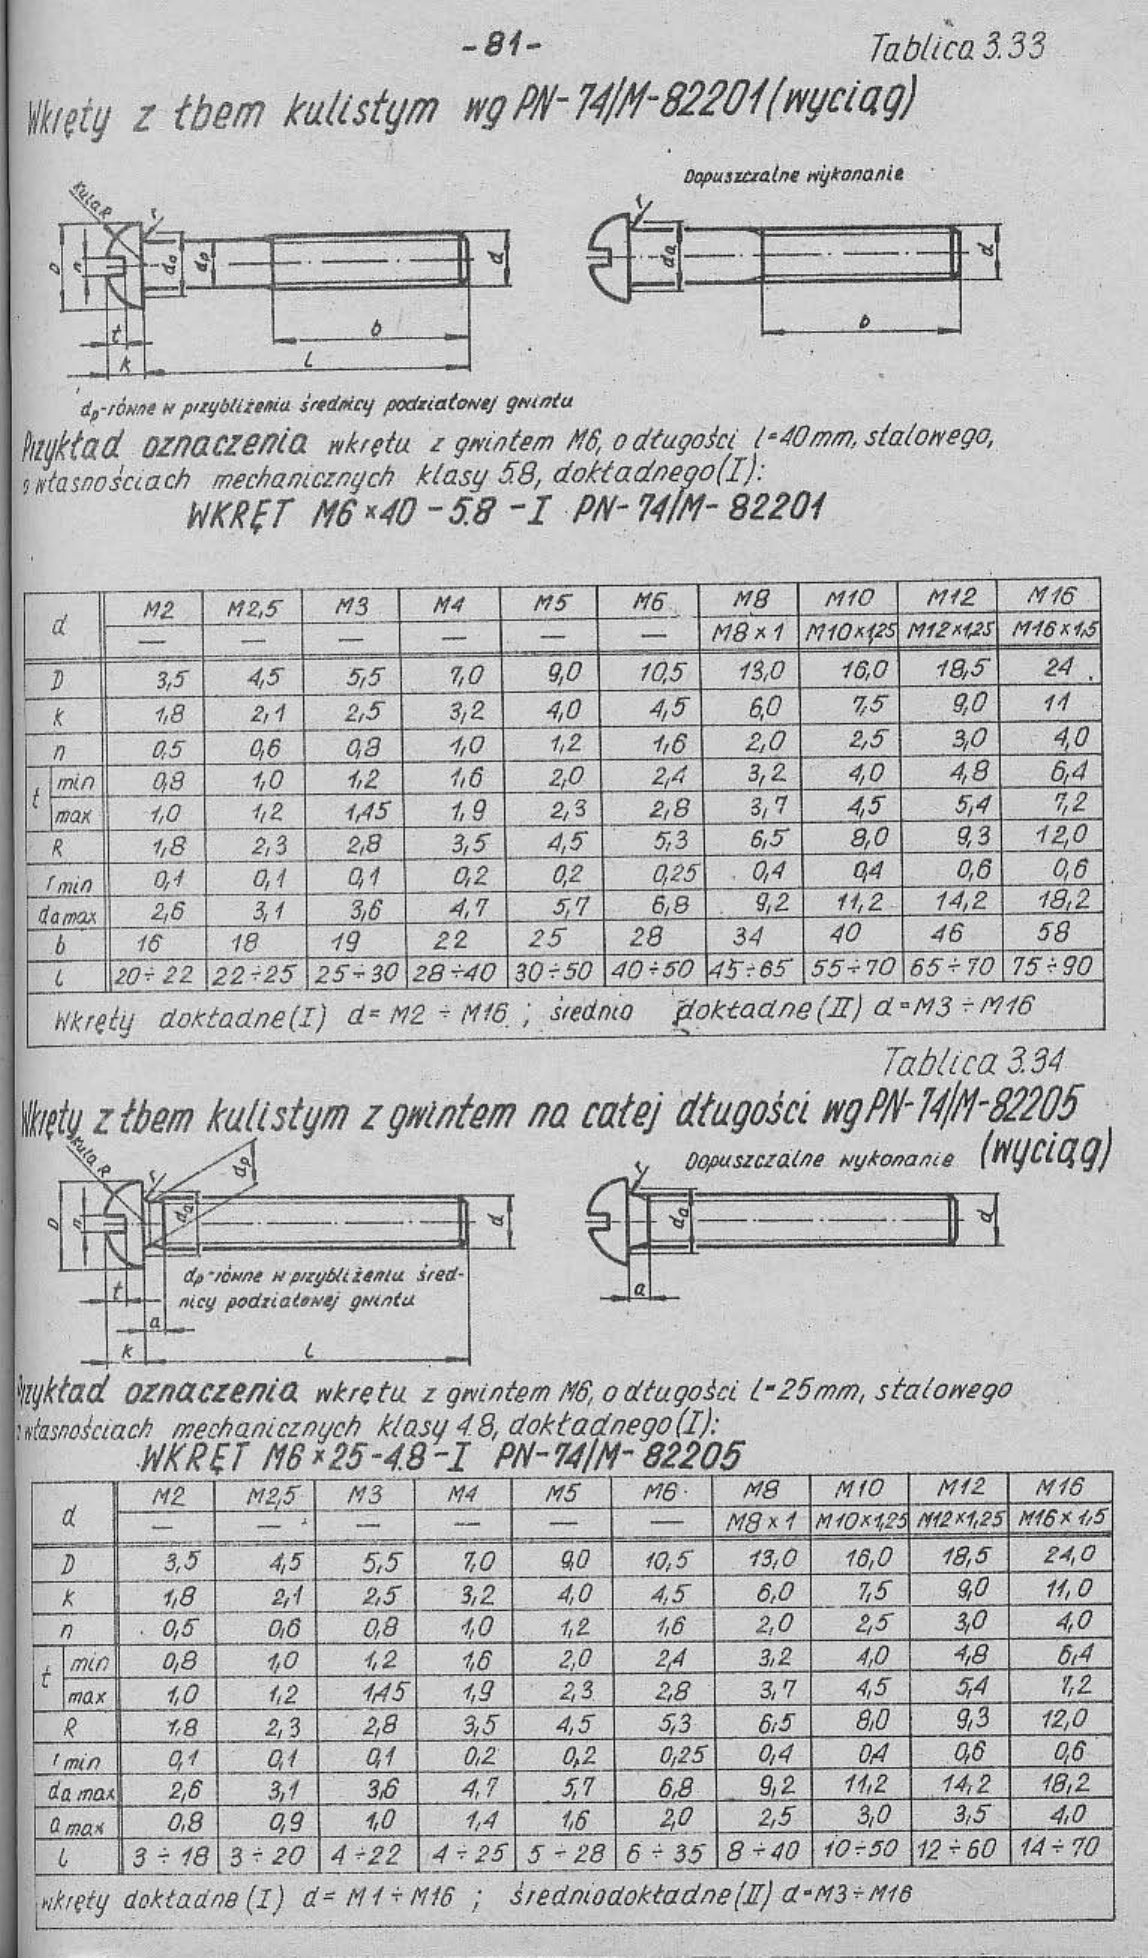 -81-
Tablica 3.33
Wkręty z łbem kulistym wg PN-74/M-82201 (wyciąg)
Dopuszczalne wykonanie
Kula R
r
D n da dp d
t b
k l
r
da d
b
dp-równe w przybliżeniu średnicy podziałowej gwintu
Przykład oznaczenia wkrętu z gwintem M6, o długości l=40mm, stalowego,
o własnościach mechanicznych klasy 5.8, dokładnego (I):
WKRĘT M6×40-5.8-I PN-74/M-82201
d M2 M2,5 M3 M4 M5 M6 M8 M10 M12 M16
— — — — — — M8×1 M10×1,25 M12×1,25 M16×1,5
D 3,5 4,5 5,5 7,0 9,0 10,5 13,0 16,0 18,5 24
k 1,8 2,1 2,5 3,2 4,0 4,5 6,0 7,5 9,0 11
n 0,5 0,6 0,8 1,0 1,2 1,6 2,0 2,5 3,0 4,0
t min 0,8 1,0 1,2 1,6 2,0 2,4 3,2 4,0 4,8 6,4
max 1,0 1,2 1,45 1,9 2,3 2,8 3,7 4,5 5,4 7,2
R 1,8 2,3 2,8 3,5 4,5 5,3 6,5 8,0 9,3 12,0
r min 0,1 0,1 0,1 0,2 0,2 0,25 0,4 0,4 0,6 0,6
da max 2,6 3,1 3,6 4,7 5,7 6,8 9,2 11,2 14,2 18,2
b 16 18 19 22 25 28 34 40 46 58
l 20÷22 22÷25 25÷30 28÷40 30÷50 40÷50 45÷65 55÷70 65÷70 75÷90
Wkręty dokładne (I) d=M2÷M16; średnio dokładne (II) d=M3÷M16
Tablica 3.34
Wkręty z łbem kulistym z gwintem na całej długości wg PN-74/M-82205
(wyciąg)
Dopuszczalne wykonanie
Kula R
r dp
D n da d
t
a
k l
r
da d
a
dp-równe w przybliżeniu śred-
nicy podziałowej gwintu
Przykład oznaczenia wkrętu z gwintem M6, o długości l=25mm, stalowego
o własnościach mechanicznych klasy 4.8, dokładnego (I):
WKRĘT M6×25-4.8-I PN-74/M-82205
d M2 M2,5 M3 M4 M5 M6 M8 M10 M12 M16
— — — — — — M8×1 M10×1,25 M12×1,25 M16×1,5
D 3,5 4,5 5,5 7,0 9,0 10,5 13,0 16,0 18,5 24,0
k 1,8 2,1 2,5 3,2 4,0 4,5 6,0 7,5 9,0 11,0
n 0,5 0,6 0,8 1,0 1,2 1,6 2,0 2,5 3,0 4,0
t min 0,8 1,0 1,2 1,6 2,0 2,4 3,2 4,0 4,8 6,4
max 1,0 1,2 1,45 1,9 2,3 2,8 3,7 4,5 5,4 7,2
R 1,8 2,3 2,8 3,5 4,5 5,3 6,5 8,0 9,3 12,0
r min 0,1 0,1 0,1 0,2 0,2 0,25 0,4 0,4 0,6 0,6
da max 2,6 3,1 3,6 4,7 5,7 6,8 9,2 11,2 14,2 18,2
a max 0,8 0,9 1,0 1,4 1,6 2,0 2,5 3,0 3,5 4,0
l 3÷18 3÷20 4÷22 4÷25 5÷28 6÷35 8÷40 10÷50 12÷60 14÷70
wkręty dokładne (I) d=M1÷M16; średniodokładne (II) d=M3÷M16